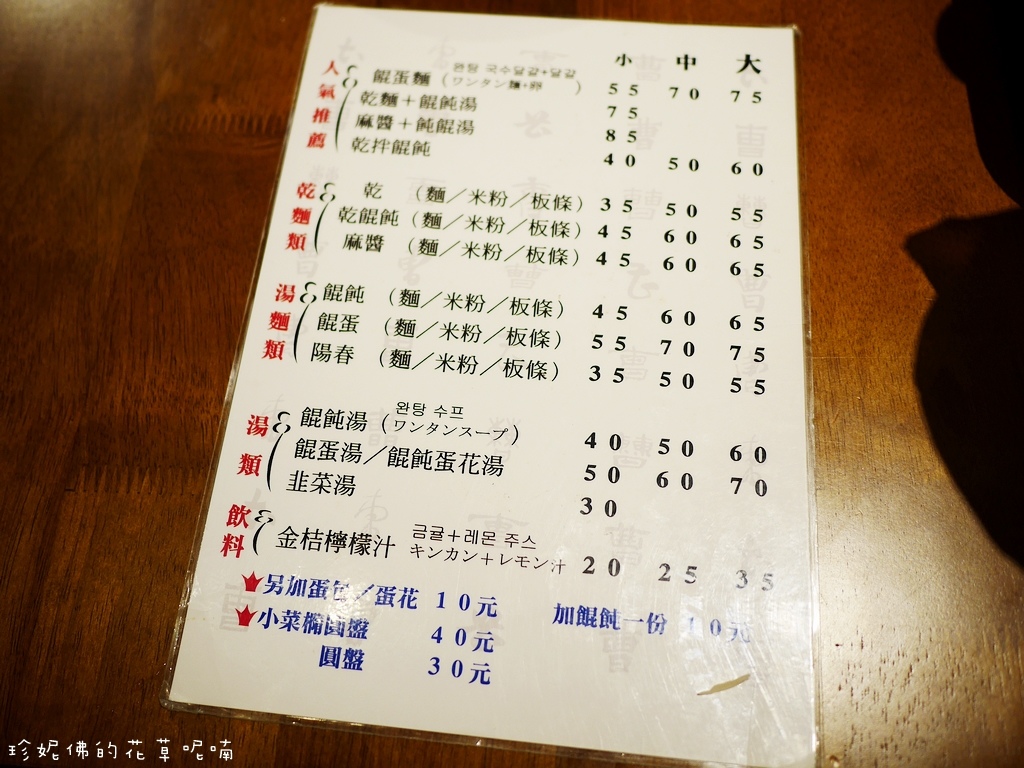 小 中 大
人氣推薦
완탕 국수달걀+달걀
餛蛋麵 (ワンタン麵+卵) 55 70 75
乾麵＋餛飩湯 75
麻醬＋飩餛湯 85
乾拌餛飩 40 50 60
乾麵類
乾 （麵／米粉／板條） 35 50 55
乾餛飩（麵／米粉／板條） 45 60 65
麻醬 （麵／米粉／板條） 45 60 65
湯麵類
餛飩 （麵／米粉／板條） 45 60 65
餛蛋 （麵／米粉／板條） 55 70 75
陽春 （麵／米粉／板條） 35 50 55
湯類
완탕 수프
餛飩湯 (ワンタンスープ) 40 50 60
餛蛋湯／餛飩蛋花湯 50 60 70
韭菜湯 30
飲料
금귤＋레몬 주스
金桔檸檬汁 キンカン＋レモン汁 20 25 35
另加蛋包／蛋花 10元 加餛飩一份 10元
小菜橢圓盤 40元
圓盤 30元
珍妮佛的花草呢喃